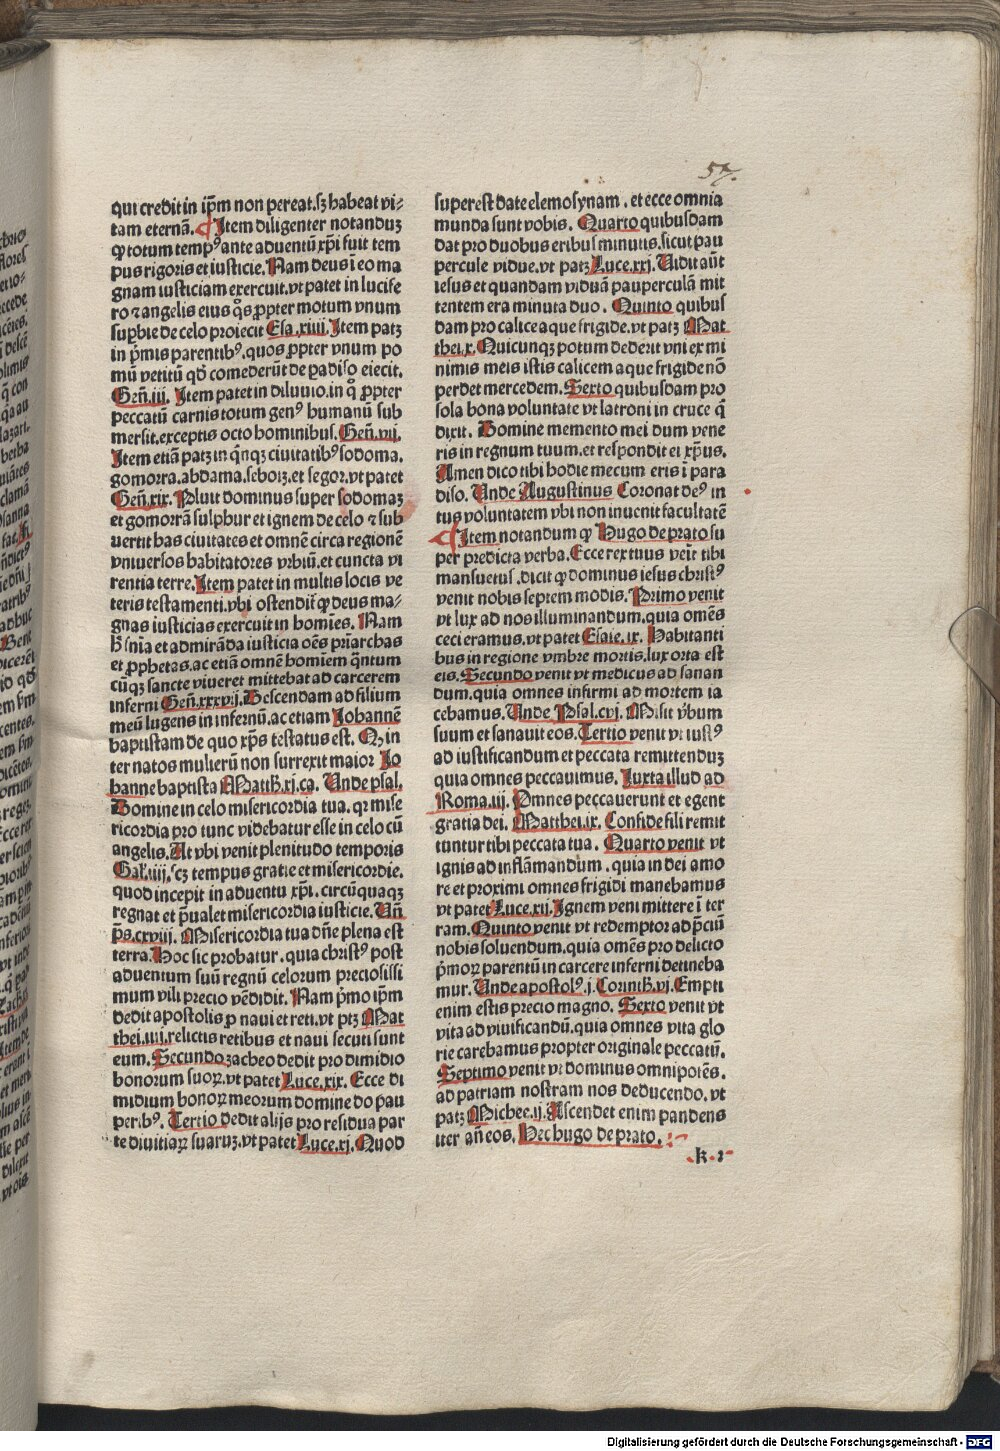 57.
qui credit in ip̄m non pereat.sꝫ habeat vi⸗
tam eternā. ¶ Item diligenter notanduꝫ
ꝙ totum tempꝰ ante aduentū xp̄i fuit tem
pus rigoris et iusticie. Nam deus ī eo ma
gnam iusticiam exercuit.vt patet in lucife
ro ⁊ angelis eius q̄s ꝓpter motum vnum
suꝑbie de celo proiecit Esa .xiiii. Item patꝫ
in p̄mis parentibꝰ.quos ꝓpter vnum po
mū vetitū qđ comederūt de ꝑadiso eiecit.
Geñ.iii. Item patet in diluuio.in q̊ ꝓpter
peccatū carnis totum genꝰ humanū sub
mersit.exceptis octo hominibus. Geñ.vij.
Item etiā patꝫ in q̄nqꝫ ciuitatibꝰ sodoma.
gomorra.abdama.seboiꝫ.et segor.vt patet
Geñ.xix. Pluit dominus super sodomaꝫ
et gomorrā sulphur et ignem de celo ⁊ sub
uertit has ciuitates et omnē circa regionē
vniuersos habitatores vrbiū.et cuncta vi
rentia terre. Item patet in multis locis ve
teris testamenti.vbi ostendit̄ ꝙ deus ma⸗
gnas iusticias exercuit in homīes. Nam
h̄ sn̄ia et admirāda iusticia oēs pr̄iarchas
et ꝓphetas.ac etiā omnē homīem q̄ntum
cūqꝫ sancte viueret mittebat ad carcerem
inferni Geñ.xxxvij. Descendam ad filium
meū lugens in infernū.ac etiam Johannē
baptistam de quo xp̄s testatus est. Q̄ in
ter natos mulierū non surrexit maior Jo
hanne baptista Matth̄.xj.ca. Unde psal.
Domine in celo misericordia tua. qꝛ mise
ricordia pro tunc videbatur esse in celo cū
angelis. At vbi venit plenitudo temporis
Gal.iiij.scꝫ tempus gratie et misericordie.
quod incepit in aduentu xp̄i. circūquaqꝫ
regnat et p̄ualet misericordia iusticie. Uñ
p̄s.cxviij. Misericordia tua dn̄e plena est
terra. Hoc sic probatur.quia christꝰ post
aduentum suū regnū celorum preciosissi
mum vili precio vēdidit. Nam p̄mo ip̄m
dedit apostolis ꝓ naui et reti.vt ptꝫ Mat
thei.iiij.relictis retibus et naui secuti sunt
eum. Secundo zacheo dedit pro dimidio
bonorum suoꝝ.vt patet Luce.xix. Ecce di
midium bonoꝝ meorum domine do pau
peribꝰ. Tertio dedit alijs pro residua par
te diuitiaꝝ suaruꝫ.vt patet Luce.xj. Quod
superest date elemosynam . et ecce omnia
munda sunt vobis. Quarto quibusdam
dat pro duobus eribus minutis.sicut pau
percule vidue.vt patꝫ Luce.xxj. Uidit aūt
iesus et quandam viduā pauperculā mit
tentem era minuta duo. Quinto quibus
dam pro calice aque frigide.vt patꝫ Mat
thei.x. Quicunqꝫ potum dederit vni ex mi
nimis meis istis calicem aque frigide nō
perdet mercedem. Sexto quibusdam pro
sola bona voluntate vt latroni in cruce q̄
dixit. Domine memento mei dum vene
ris in regnum tuum.et respondit ei xp̄us.
Amen dico tibi hodie mecum eris ī para
diso. Unde Augustinus Coronat deꝰ in
tus voluntatem vbi non inuenit facultatē
¶ Item notandum ꝙ Hugo de prato su
per predicta verba. Ecce rex tuus venit tibi
mansuetus .dicit ꝙ dominus iesus christꝰ
venit nobis septem modis. Primo venit
vt lux ad nos illuminandum.quia omēs
ceci eramus.vt patet Esaie.ix. Habitanti
bus in regione vmbre mortis.lux orta est
eis. Secundo venit vt medicus ad sanan
dum.quia omnes infirmi ad mortem ia
cebamus. Unde Psal.cvj. Misit v̄bum
suum et sanauit eos. Tertio venit vt iustꝰ
ad iustificandum et peccata remittenduꝫ
quia omnes peccauimus. Juxta illud ad
Roma.iij. Omnes peccauerunt et egent
gratia dei. Matthei.ix. Confide fili remit
tuntur tibi peccata tua . Quarto venit vt
ignis ad inflāmandum . quia in dei amo
re et proximi omnes frigidi manebamus
vt patet Luce.xij. Ignem veni mittere ī ter
ram. Quinto venit vt redemptor ad p̄ciū
nobis soluendum.quia omēs pro delicto
p̄moꝝ parentū in carcere inferni detineba
mur. Unde apostolꝰ .j. Corinth̄.vj. Empti
enim estis precio magno. Sexto venit vt
vita ad viuificandū.quia omnes vita glo
rie carebamus propter originale peccatū.
Septimo venit vt dominus omnipotēs.
ad patriam nostram nos deducendo. vt
patꝫ Michee.ij. Ascendet enim pandens
iter añ eos. Hec hugo de prato.
k ı
Digitalisierung gefördert durch die Deutsche Forschungsgemeinschaft - DFG